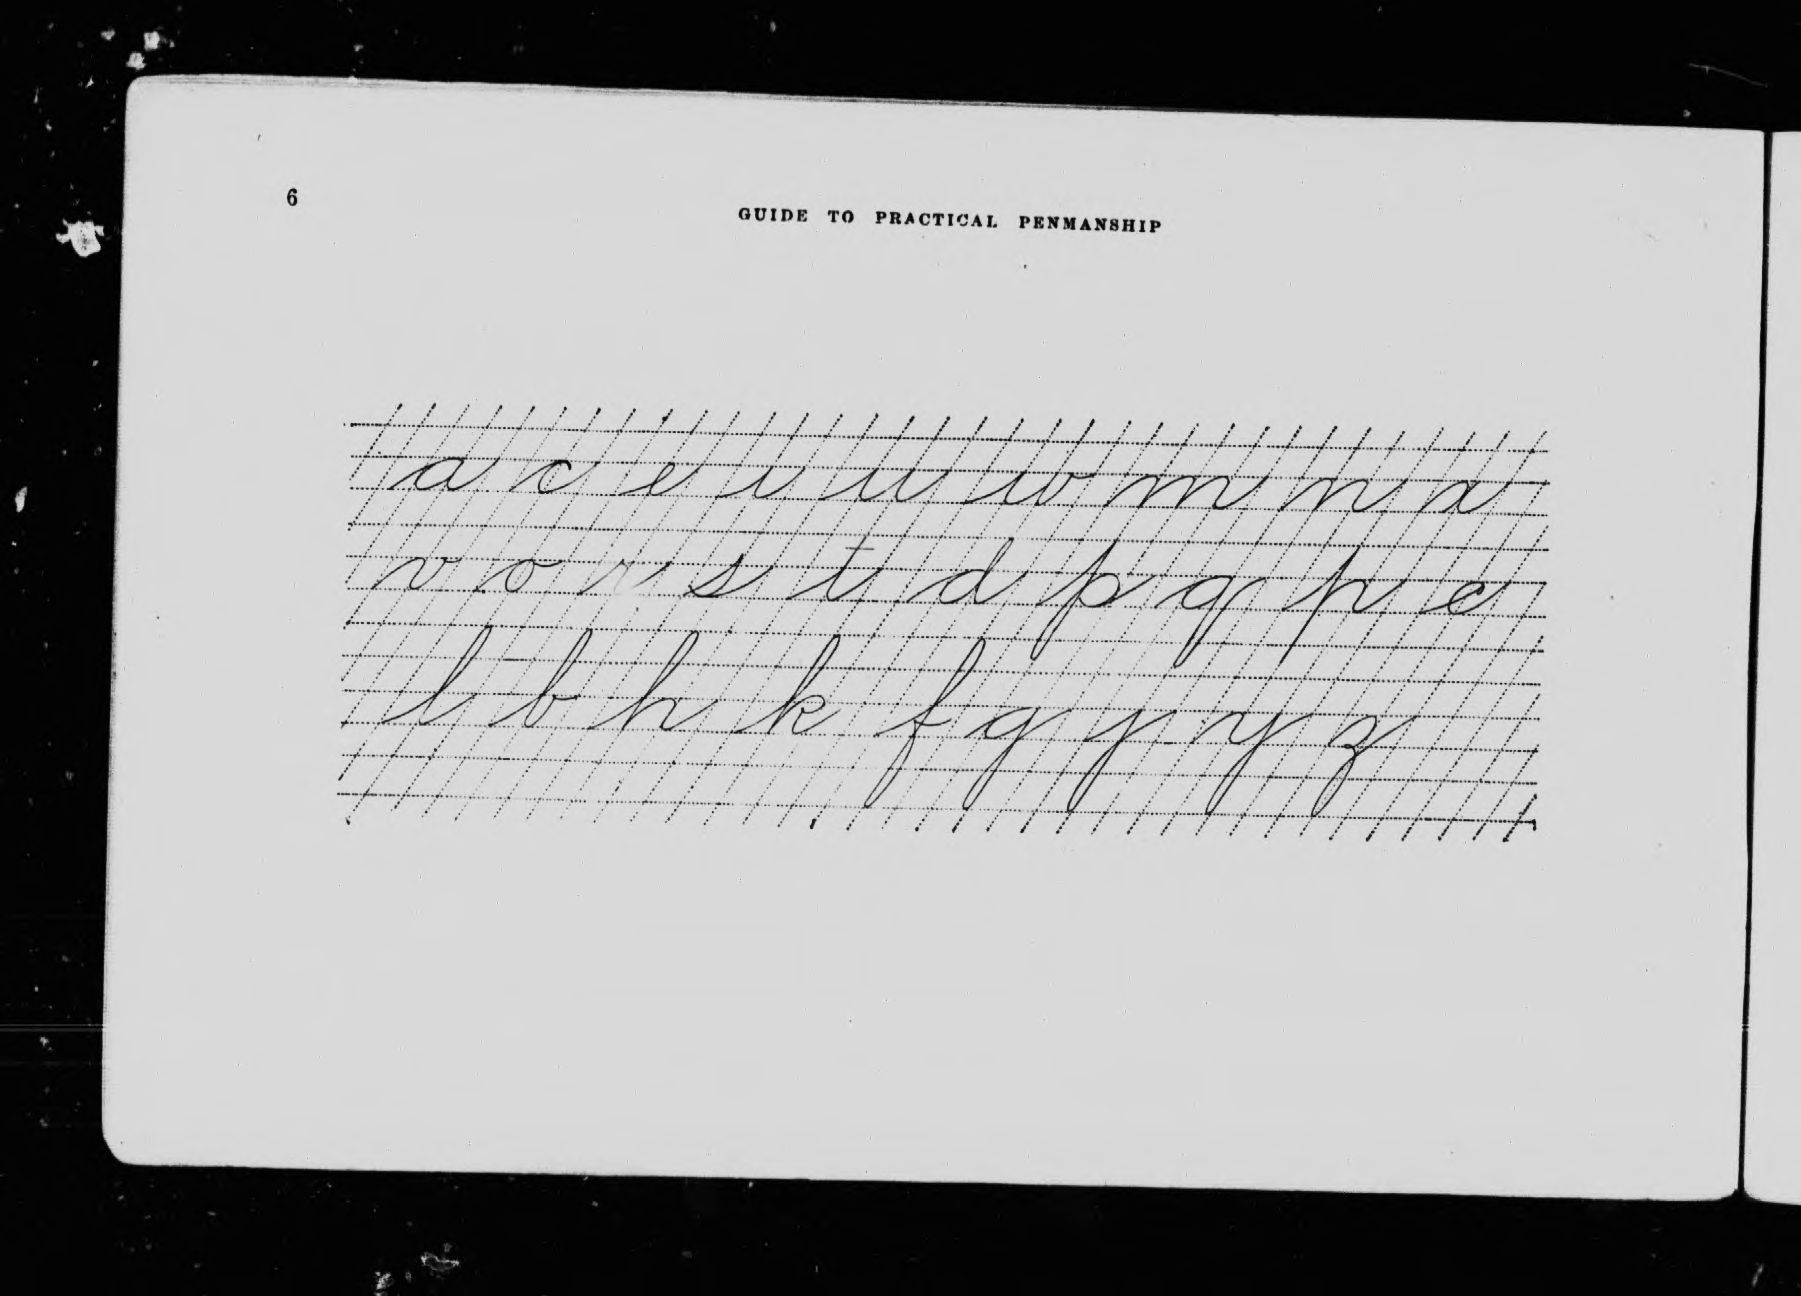 6
GUIDE TO PRACTICAL PENMANSHIP
a c e i u w m n x
v o r s t d p q p c
l b h k f g j y z